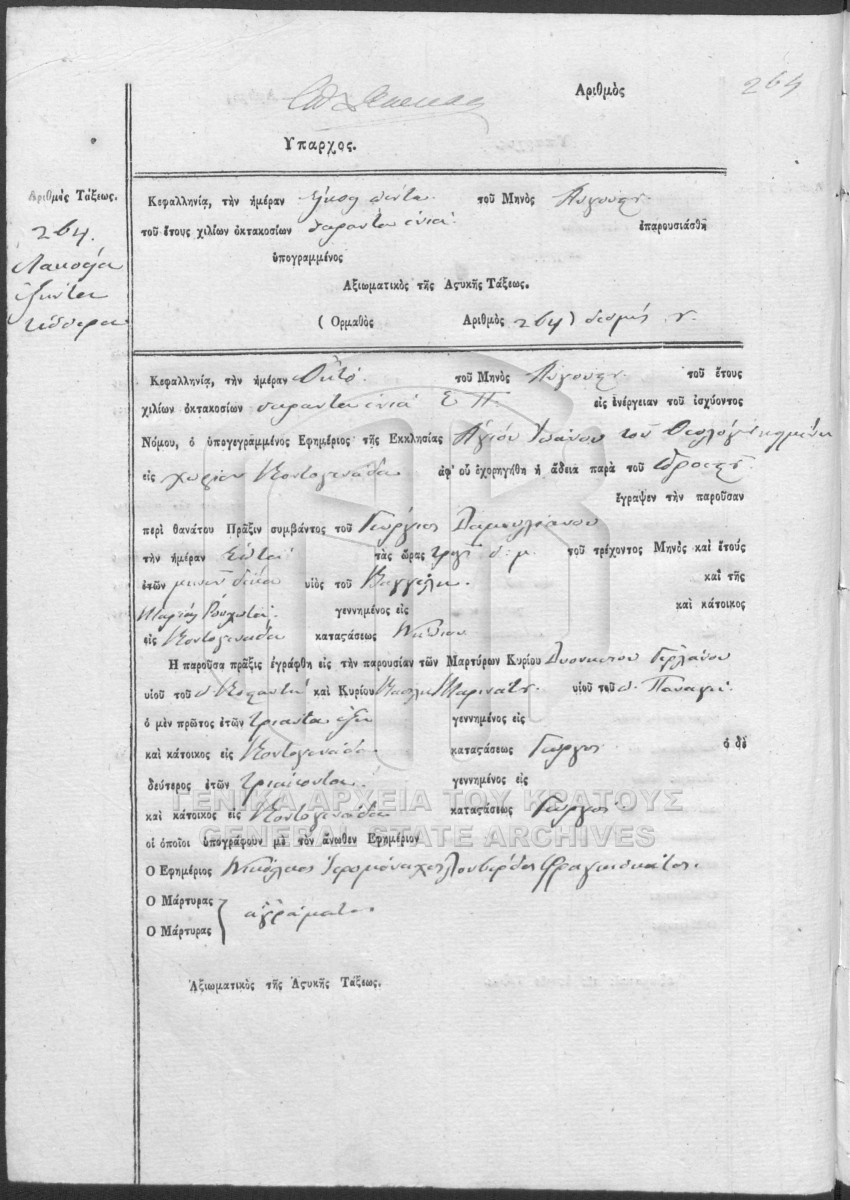 Αριθμὸς 264
Υπαρχος.
Αριθμὸς Τάξεως.
264.
διακοσία
ἑξήντα
τέσσερα
Κεφαλληνία, τὴν ἡμέραν εἴκοσι πέντε τοῦ Μηνὸς Αὐγούστ.
τοῦ ἔτους χιλίων ὀκτακοσίων σαράντα ἐνιά. ἐπαρουσιάσθη
ὑπογραμμένος
Αξιωματικὸς τῆς Αςυκῆς Τάξεως.
( Ορμαθὸς Αριθμὸς 264)
Κεφαλληνία, τὴν ἡμέραν Ὀκτὸ. τοῦ Μηνὸς Αὐγούστ. τοῦ ἔτους
χιλίων ὀκτακοσίων σαράντα ἐνιά Ε. Π. εἰς ἐνέργειαν τοῦ ἰσχύοντος
Νόμου, ὁ ὑπογεγραμμένος Εφημέριος τῆς Εκκλησίας Ἁγίου Ἰωάνου τοῦ Θεολόγου
εἰς χωρίον Κοντογενάδα ἀφ' οὗ ἐχορηγήθη ἡ ἄδεια παρὰ τοῦ
ἔγραψεν τὴν παροῦσαν
περὶ θανάτου Πρᾶξιν συμβάντος τοῦ Γεώργιος Δαμουλιάνου
τὴν ἡμέραν Εὐτά. τὰς ὥρας τρεῖς π: μ. τοῦ τρέχοντος Μηνὸς καὶ ἔτοὺς
ἐτῶν μηνῶν δέκα υἱὸς τοῦ Βαγγέλη. καὶ τῆς
Μαρίας γεννημένος εἰς καὶ κάτοικος
εἰς Κοντογενάδα καταςάσεως Νήπιον
Η παροῦσα πρᾶξις ἐγράφθη εἰς τὴν παρουσίαν τῶν Μαρτύρων Κυρίου Διονυσίου Γερλάνου
υἱοῦ τοῦ καὶ Κυρίου Μαρινάτ. υἱοῦ τοῦ π. Παναγή.
ὁ μὲν πρῶτος ἐτῶν τριάντα ἕξη γεννημένος εἰς
καὶ κάτοικος εἰς Κοντογενάδα καταςάσεως Γεωργὸς ὁ δὲ
δεύτερος ἐτῶν τριάκοντα. γεννημένος εἰς
καὶ κάτοικος εἰς Κοντογενάδα καταςάσεως Γεωργὸς
οἱ ὁποῖοι ὑπογράφουν μὲ τὸν ἄνωθεν Εφημέριον
Ο Εφημέριος Νικόλαος Ἱερομόναχος Λουβέρδος Φραγκισκάτος.
Ο Μάρτυρας
Ο Μάρτυρας } ἀγράματοι
Αξιωματικὸς τῆς Αςυκῆς Τάξεως.
ΓΕΝΙΚΑ ΑΡΧΕΙΑ ΤΟΥ ΚΡΑΤΟΥΣ
GENERAL STATE ARCHIVES